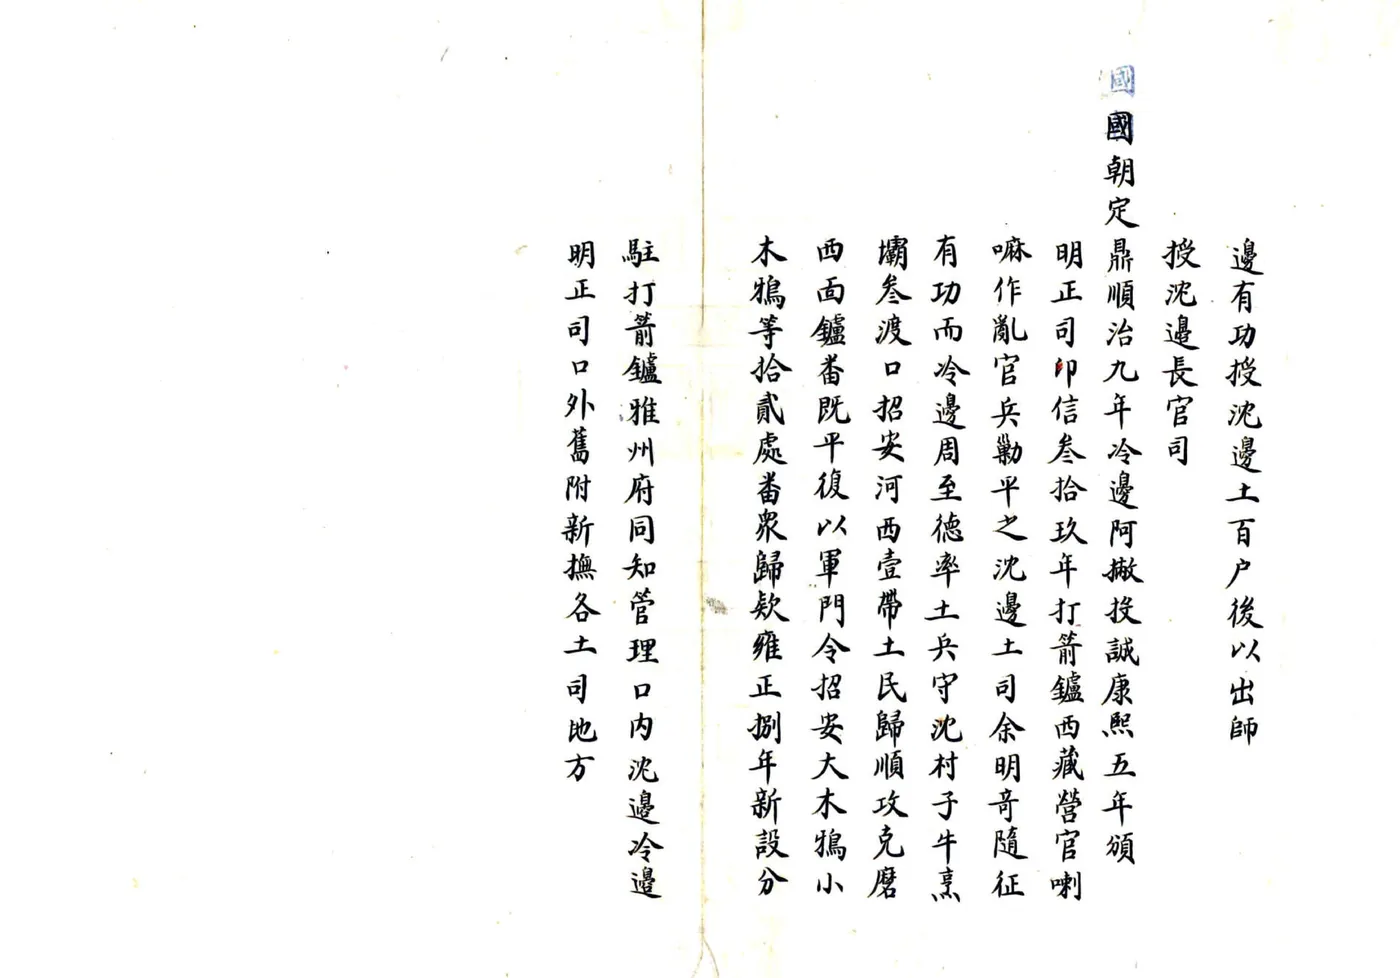 邊有功授沈邊土百户後以出師
授沈邊長官司
國
國朝定鼎順治九年冷邊阿撇投誠康熙五年頒
明正司印信叁拾玖年打箭鑪西藏營官喇
嘛作亂官兵勦平之沈邊土司余明竒隨征
有功而冷邊周至德率土兵守沈村子牛烹
壩叁渡口招安河西壹帶土民歸順攻克磨
西面鑪番既平復以軍門令招安大木鴉小
木鴉等拾貳處番衆歸欵雍正捌年新設分
駐打箭鑪雅州府同知管理口内沈邊冷邊
明正司口外舊附新撫各土司地方